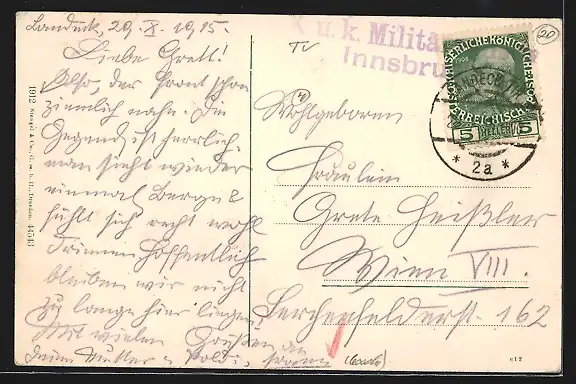 Landeck, 29. X. 1915.
Liebe Gretl!
Also, der Front schon
ziemlich nahe. Die
Gegend ist herrlich,
man sieht wieder
einmal Berge &
fühlt sich recht wohl
drinnen. Hoffentlich
bleiben wir nicht
zu lange hier liegen!
Mit vielen Grüßen an
deine Mutter & Poldi,
1912 Stengel & Co., G. m. b. H., Dresden 44543
K. u. k. Militä
Innsbru
20
KAISERLICHE KÖNIGLICHE
ÖSTERREICHISCHE
5 HELLER 5
* 2a *
Wohlgeboren
Fräulein
Grete Heißler
Wien VIII.
Lerchenfelderst. 162